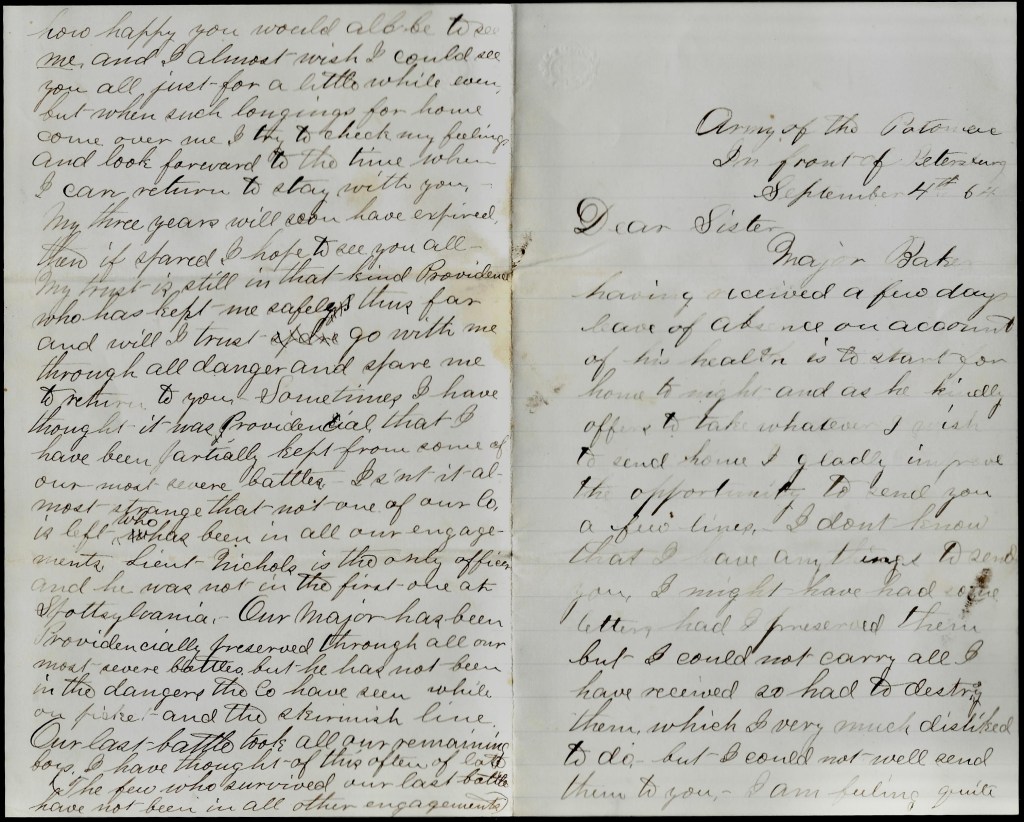 Army of the Potomac
In front of Petersburg
September 4th 64
Dear Sister,
Major Baker
having received a few days
leave of absence on account
of his health is to start for
home to night and as he kindly
offers to take whatever I wish
to send home I gladly improve
the opportunity to send you
a few lines, - I dont know
that I have any things to send
you, I might have had some
letters, had I preserved them
but I could not carry all I
have received so had to destroy
them, which I very much disliked
to do - but I could not well send
them to you, - I am feeling quite
how happy you would all be to see
me, and I almost wish I could see
you all just for a little while even,
but when such longings for home
come over me I try to check my feelings
and look forward to the time when
I can return to stay with you, -
My three years will soon have expired,
then if spared I hope to see you all -
My trust is still in that kind Providence
who has kept me safely thus far
and will I trust spare go with me
through all danger and spare me
to return to you, Sometimes I have
thought it was Providencial that I
have been partially kept from some of
our most severe battles - Isn't it al-
most strange that not one of our Co,
is left who has been in all our engage-
ments, Lieut Nichols is the only officer
and he was not in the first one at
Spottsylvania, - Our Major has been
Providencially preserved through all our
most severe battles, but he has not been
in the dangers the Co have seen while
on picket and the skirmish line,
Our last battle took all our remaining
boys, I have thought of this often of late
The few who survived our last battle
have not been in all other engagements